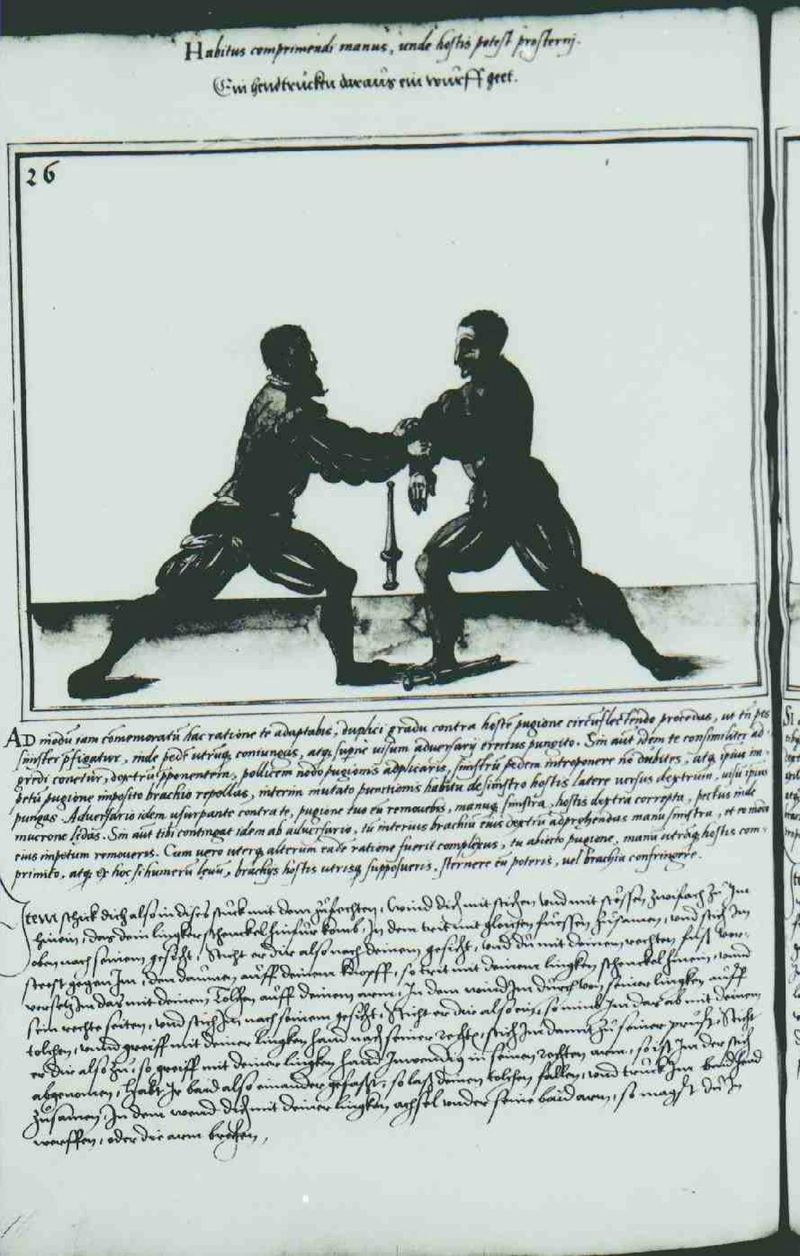 Habitus comprimendi manus, unde hostis potest prosterni.
Ein hendtrucken daraus ein wurff geet.
26
AD modū iam comemoratū hac ratione te adaptabis, duplici gradu contra hostē pugione circūflectendo procedas, ut tn̄ pes
sinister p̄figatur, inde pedē utrūq; coniungas, atq; supne uisum aduersarij erectus pungito. Sin aūt idem te consimiliter ad-
gredi conetur, dextrū opponentem, pollicem nodo pugionis adplicaris, sinistrū pedem intro ponere nō dubites, atq; ipsius im-
petū pugione imposito brachio repellas, interim mutato punctionis habitu de sinistro hostis latere uersus dextrum, uisū ipsius
pungas. Aduersario idem usurpante contra te, pugione tuo eū remouebis, manuq; sinistra, hostis dextra correpta, pectus inde
mucrone lędas. Sin aūt tibi contingat idem ab aduersario, tū interius brachiū eius dextrū adprehendas manu sinistra, et eo modo
eius impetum remoueris. Cum uero uterq; alterum eadē ratione fuerit complexus, tu abiecto pugione, manū utrāq; hostis com-
primito, atq; ex hoc si humerū leuū, brachijs hostis utrisq; supposueris, sternere eū poteris, uel brachia confringere.
Item schick dich also in dises stuck mit dem zufechten, wind dich mit stichen vnd mit stossen zwifach zu Im
hinein, das dein lingker schenckel hinfür komb, In dem trit mit gleichen fuessen zusamen, vnd stich Im
oben nach seinem gesicht, Sticht er dir also nach deinem gesicht, vnd du mit deinem rechten fuß vor-
steest gegen Im, den daumen auff deinem knopff, so trit mit deinem lingken schenckel hinein, vnnd
versetz Im das mit deinem tolchen auff deinem arm, In dem wind Im durch von seiner lingken auff
sein rechte seiten, vnd stich Im nach seinem gesicht, Sticht er dir also ein, so nimb Im das ab mit deinem
tolchen, vnnd greiff mit deiner lingken hand nach seiner rechte, stich Im damit zu seiner prust, Sticht
er dir also zu, so greiff mit deiner lingken hand Inwendig in seinen rechten arm, so ist Im der stich
abgenomen, habt Ir baid also einander gefasst, so laß deinen tolchen fallen, vnd truck Im baid hend
zusamen, In dem wend dich mit deiner lingken achsel vnder seine baid arm, so magst du In
werffen, oder die arm brechen,